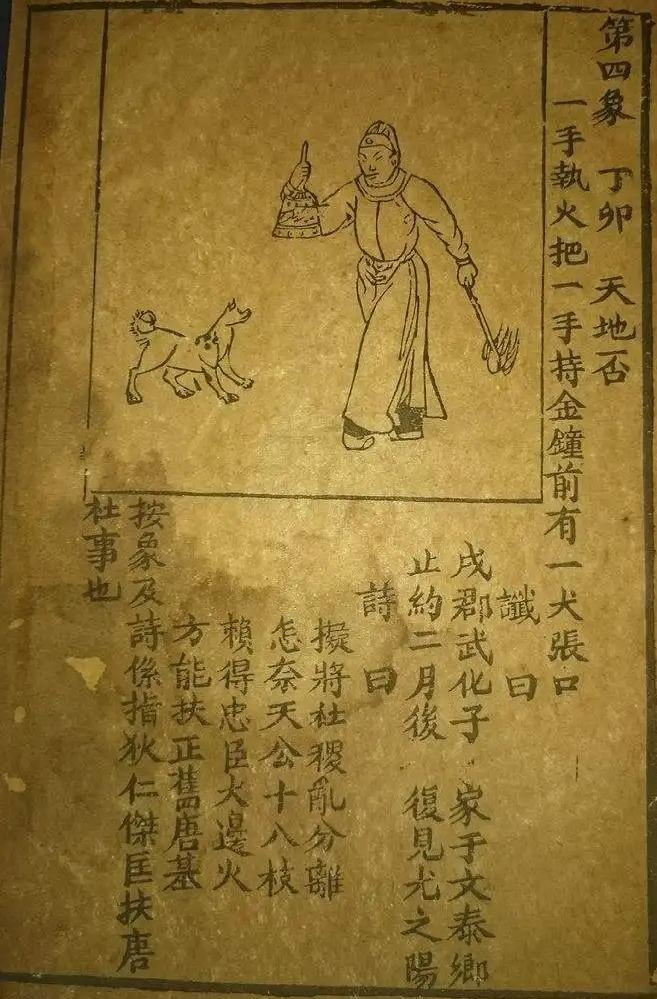 第四象 丁卯 天地否
一手執火把一手持金鐘前有一犬張口
讖曰
戌郡武化子 家于文泰鄉
止約二月後 復見尤之陽
詩曰
擬將社稷亂分離
怎奈天公十八枝
賴得忠臣犬邊火
方能扶正舊唐基
按象及詩係指狄仁傑匡扶唐
社事也